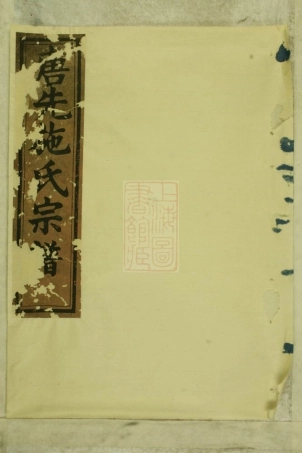 唐先施氏宗譜
上海圖書館藏